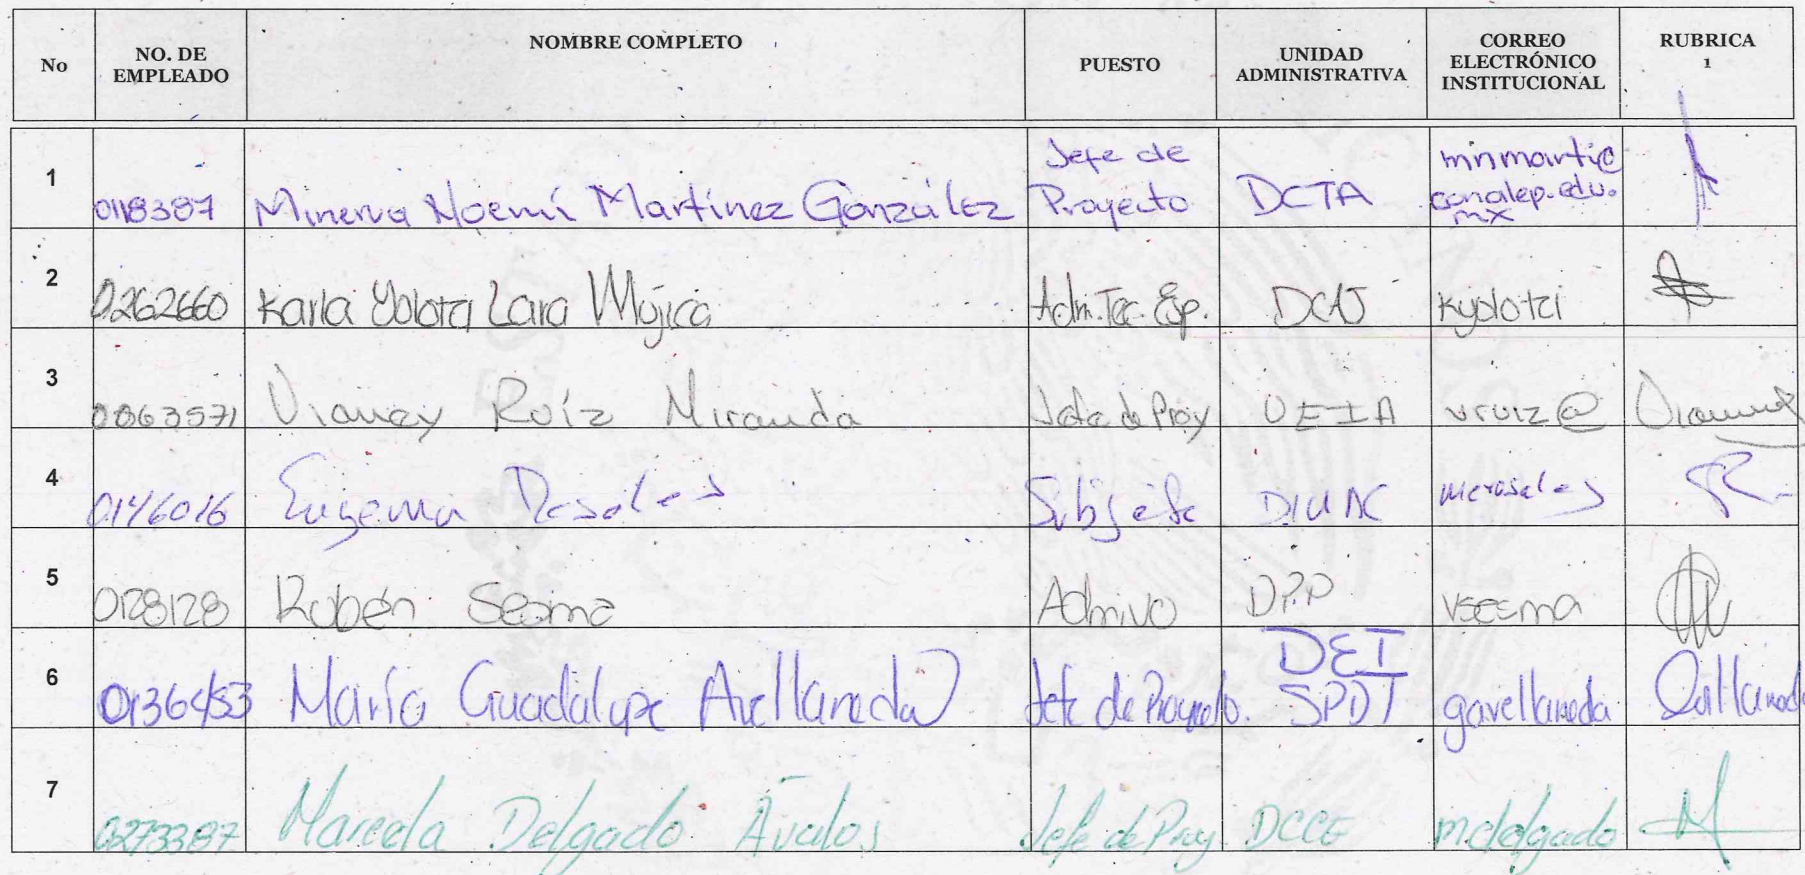 No NO. DE EMPLEADO NOMBRE COMPLETO PUESTO UNIDAD ADMINISTRATIVA CORREO ELECTRÓNICO INSTITUCIONAL RUBRICA 1
1 0118387 Minerva Noemí Martínez González Jefe de Proyecto DCTA mnmarti@conalep.edu.mx
2 0262660 Karla Lara Mújica Adm. Tec. Esp. DCAJ
3 0063571 Vianey Ruíz Miranda Jefe de Proy UEIA vruiz@
4 0146016 Eugenia Rosales Subjefe merosales
5 0128128 Rubén Sesma Admivo DPP
6 María Guadalupe Avellaneda Jefe de Proyecto. DET SPDT gavellaneda
7 0273387 Marcela Delgado Ávalos Jefe de Proy DCCE mdelgado